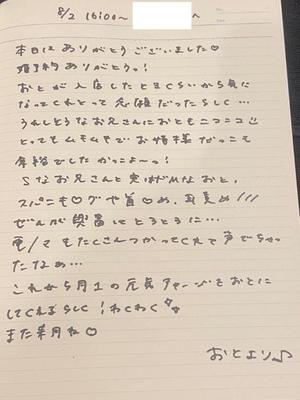 8/2 16:00〜 へ
本日はありがとうございました♡
婚約ありがとっ!
おとが入店したときくらいから気に
なってくれとって念願だったらしく…
うれしそうなお兄さんにおともニコニコ
とってもムキムキでお姫様だっこも
余裕でした かっこよ〜っ!
Sなお兄さんと実はMなおと。
スパンキ♡グや首♡め、耳責め///
ぜんぶ興奮してとろとろに…
電/マもたくさんつかってくれて声でちゃっ
たなぁ…
これから月1の元気チャージをおとに
してくれるらしく!わくわく
また来月ね♡
おとより♪